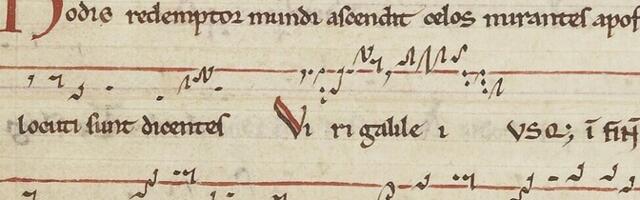 Hodie redemptor mundi ascendit celos mirantes apos
locuti sunt dicentes Vi ri galile i vsq; ī finē